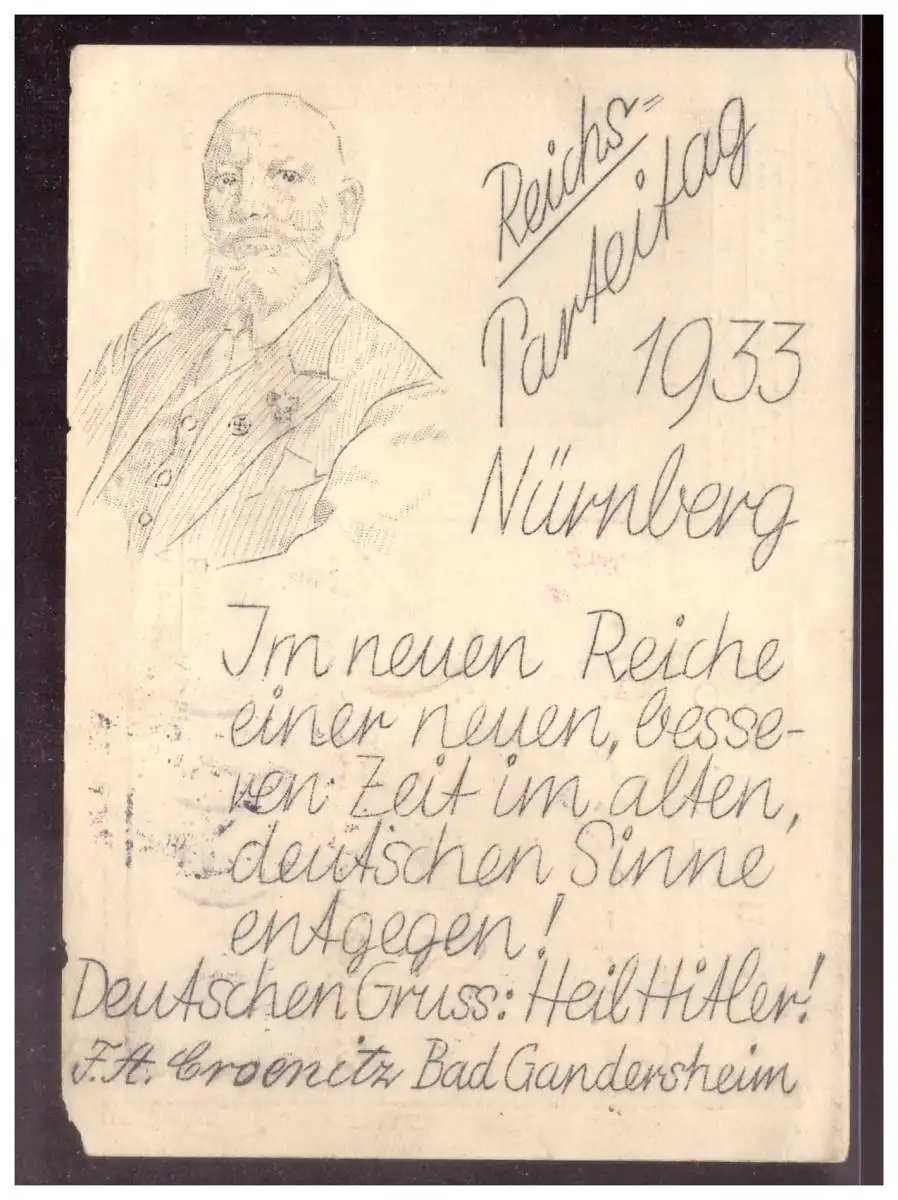 Reichs=
Parteitag
1933
Nürnberg
Im neuen Reiche
einer neuen, besse-
ren Zeit im alten,
deutschen Sinne
entgegen!
Deutschen Gruss: Heil Hitler!
F. A. Croenitz Bad Gandersheim